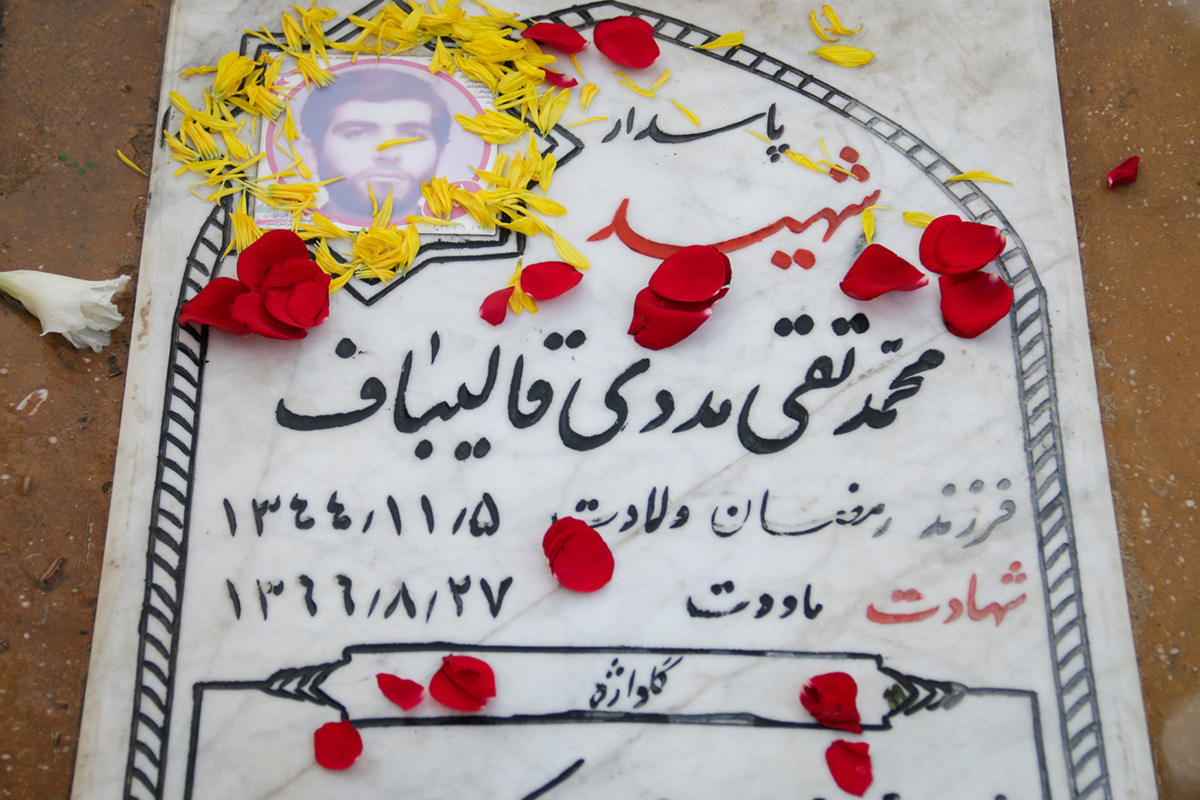 پاسدار
شهید
محمّد تقی مددی قالیباف
فرزند رمضان ولادت ۱۳۴۴/۱۱/۵
شهادت ماووت ۱۳۶۶/۸/۲۷